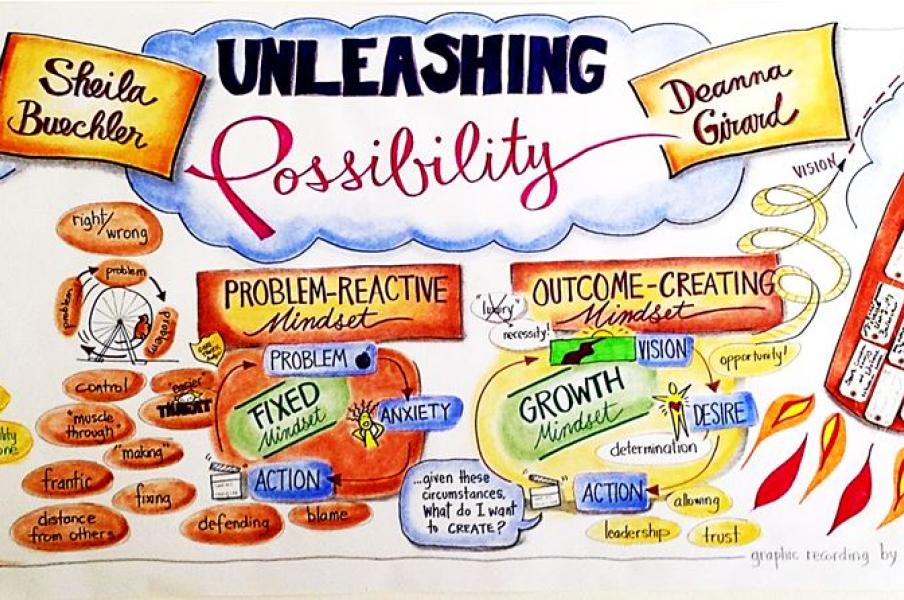 Sheila
Buechler
UNLEASHING
Possibility
Deanna
Girard
VISION
right/
wrong
problem
problem
problem
control
"easier"
THREAT
"muscle
through"
"making"
frantic
fixing
distance
from others
defending
blame
PROBLEM-REACTIVE
Mindset
PROBLEM
FIXED
Mindset
ANXIETY
ACTION
OUTCOME-CREATING
Mindset
"luxury"
necessity!
VISION
opportunity!
GROWTH
Mindset
DESIRE
determination
ACTION
allowing
leadership
trust
...given these
circumstances,
What do I want
to CREATE?
graphic recording by